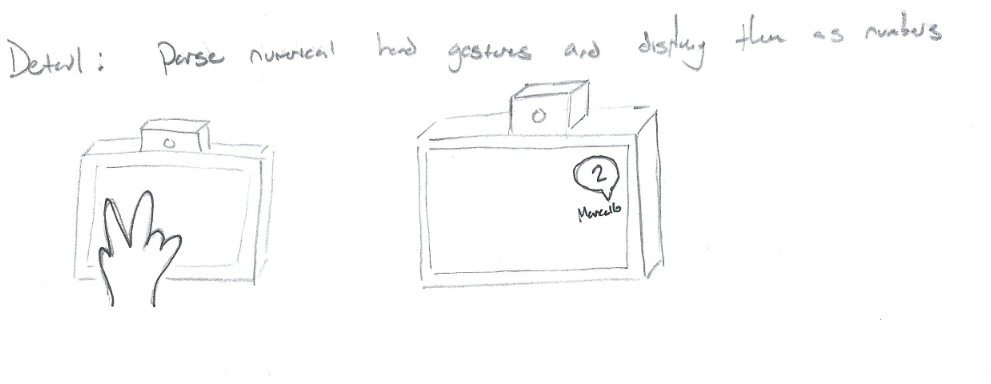 Detail: Parse numerical hand gestures and display them as numbers
2
Marcello